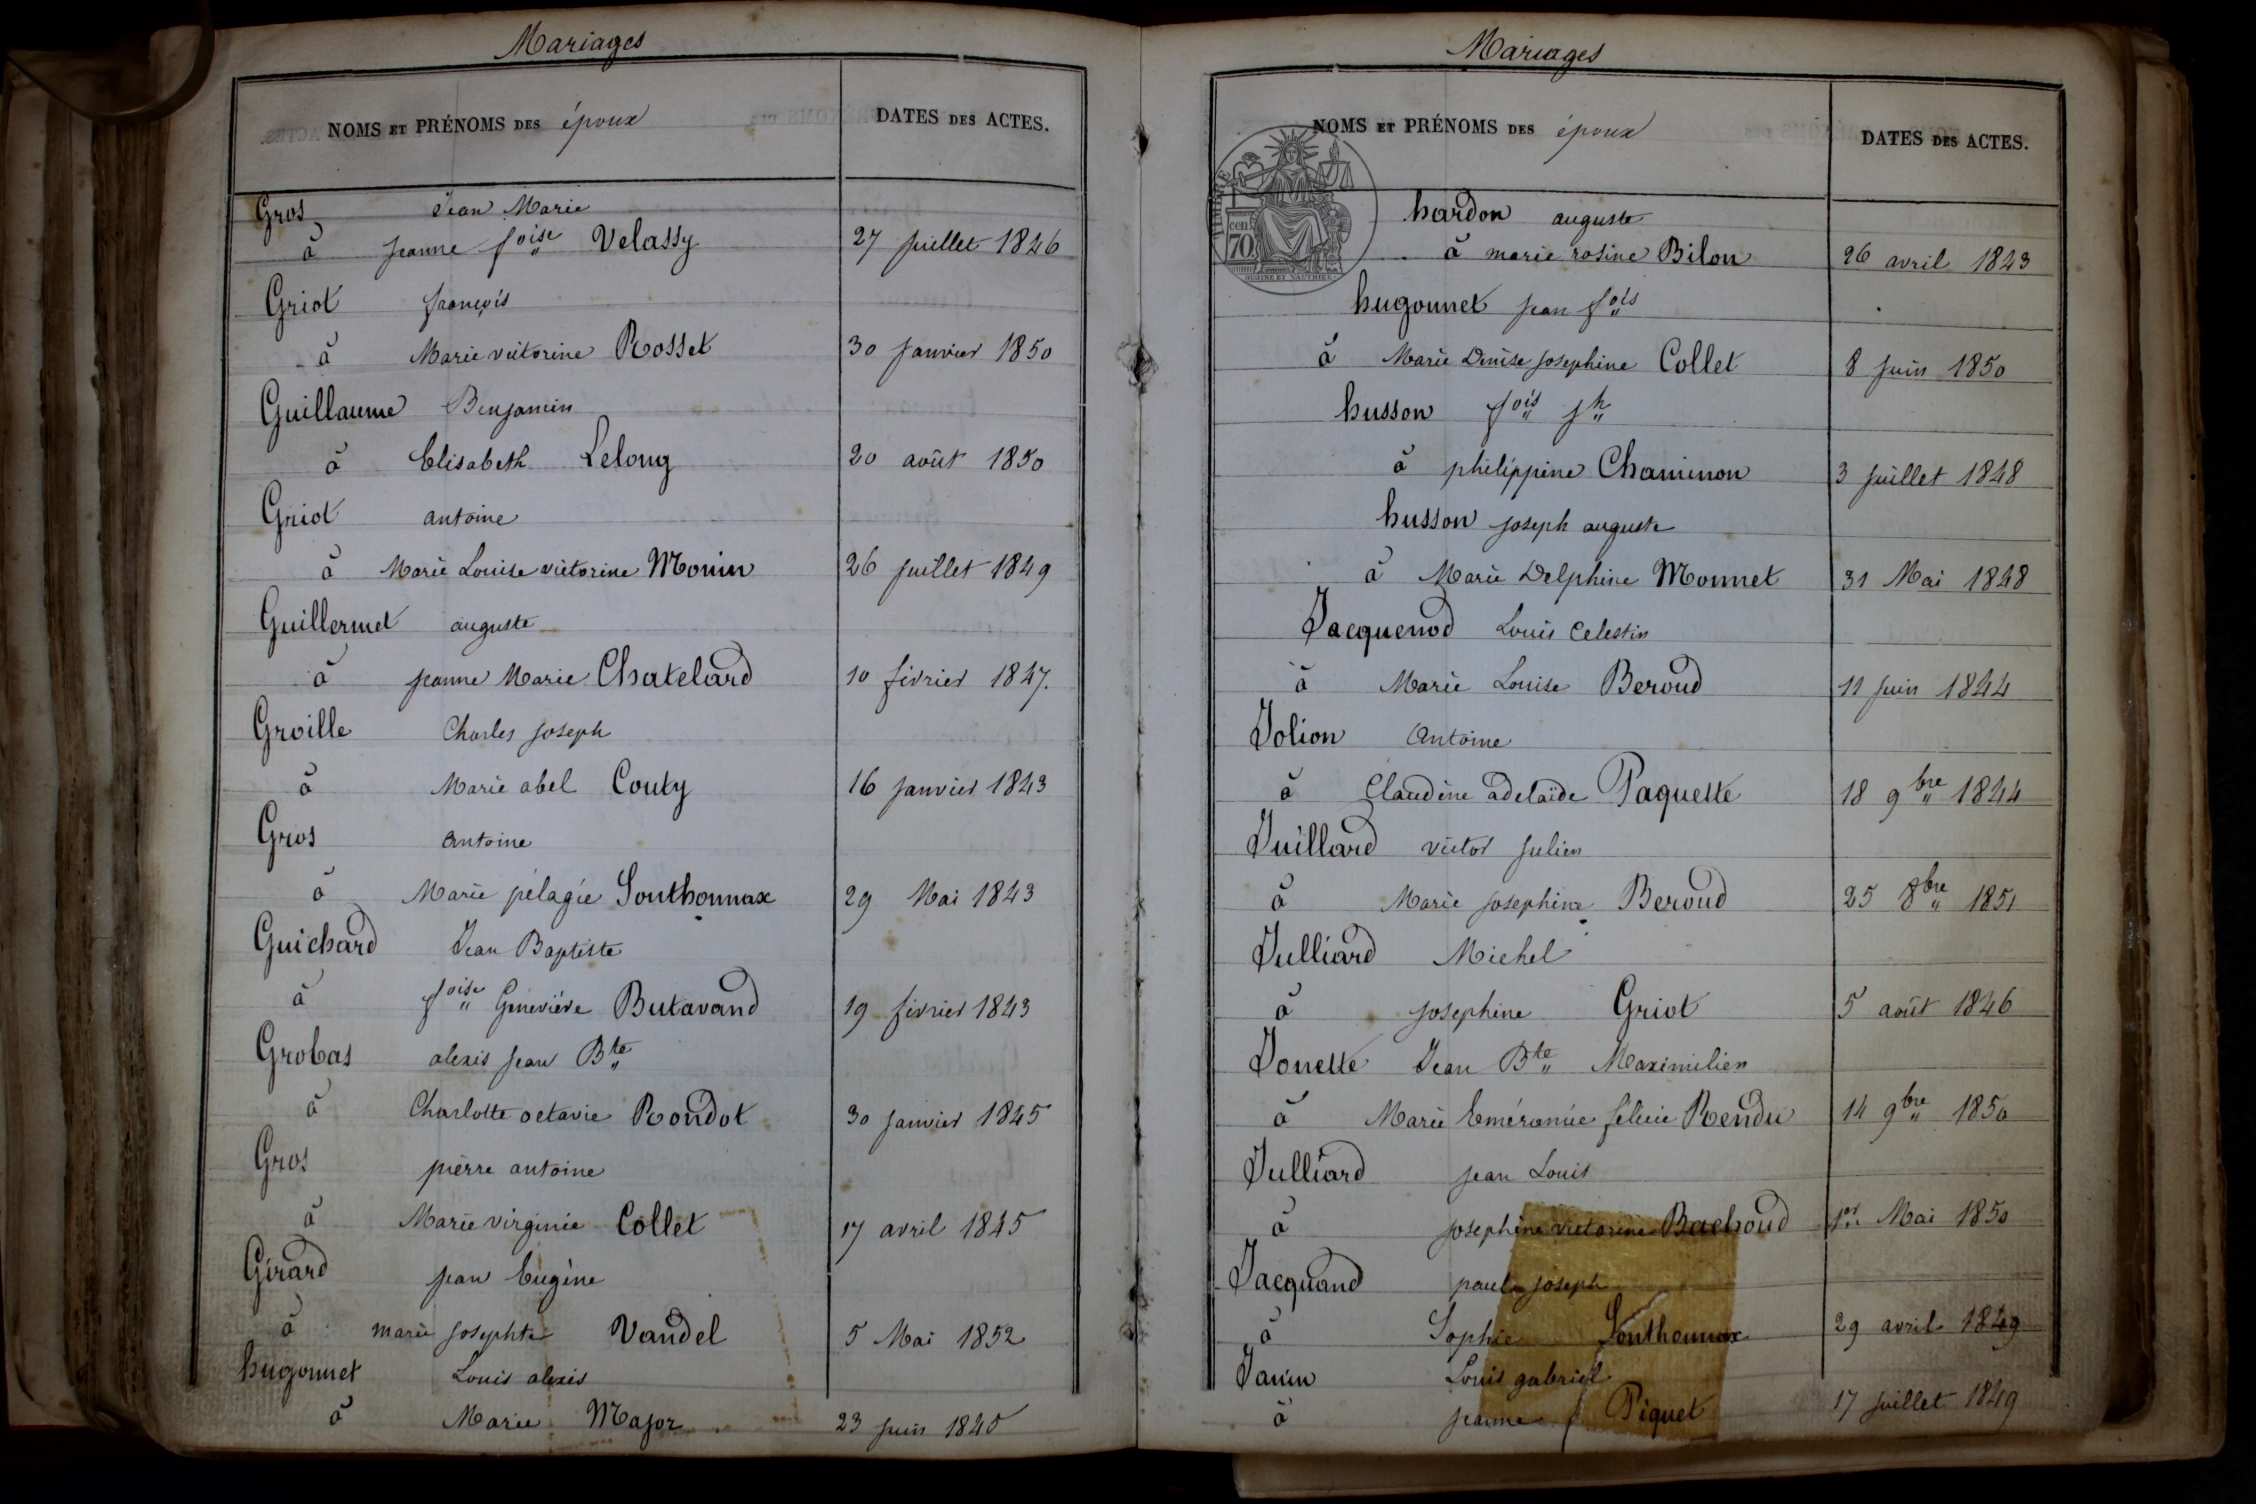 Mariages
NOMS ET PRÉNOMS DES époux
DATES DES ACTES.
Gros Jean Marie
à Jeanne foise Velassy 27 juillet 1846
Griot françois
à Marie victorine Rosset 30 janvier 1850
Guillaume Benjamin
à Elisabeth Lelong 20 août 1850
Griot antoine
à Marie Louise victorine Monin 26 juillet 1849
Guillermet auguste
à jeanne Marie Chatelard 10 février 1847.
Groille Charles joseph
à Marie abel Couty 16 janvier 1843
Gros antoine
à Marie pélagie Sonthonnax 29 Mai 1843
Guichard Jean Baptiste
à foise Geneviève Butavand 19 février 1843
Grobas alexis jean Bte
à Charlotte octavie Rondot 30 janvier 1845
Gros pierre antoine
à Marie virginie Collet 17 avril 1845
Girard jean Eugène
à marie josephte Vandel 5 Mai 1852
hugonnet Louis alexis
à Marie Major 23 juin 1845
Mariages
NOMS ET PRÉNOMS DES époux
DATES DES ACTES.
70 cen
hardon auguste
à marie rosine Bilon 26 avril 1843
hugonnet jean fois
à Marie Denise josephine Collet 8 juin 1850
husson fois jh
à philippine Chaminon 3 juillet 1848
husson joseph auguste
à Marie Delphine Monnet 31 Mai 1848
Jacquenod Louis Celestin
à Marie Louise Beroud 11 juin 1844
Jolion Antoine
à Claudine adelaïde Paquette 18 9bre 1844
Juillard victor julien
à Marie josephine Beroud 25 8bre 1851
Julliard Michel
à josephine Griot 5 août 1846
Jouette Jean Bte Maximilien
à Marie Emérancie felicie Rendu 14 9bre 1850
Julliard jean Louis
à josephine victorine Bachoud 1er Mai 1850
Jacquand paul joseph
à Sophie Sonthonnax 29 avril 1849
Janin Louis gabriel
à jeanne f Piquet 17 juillet 1849